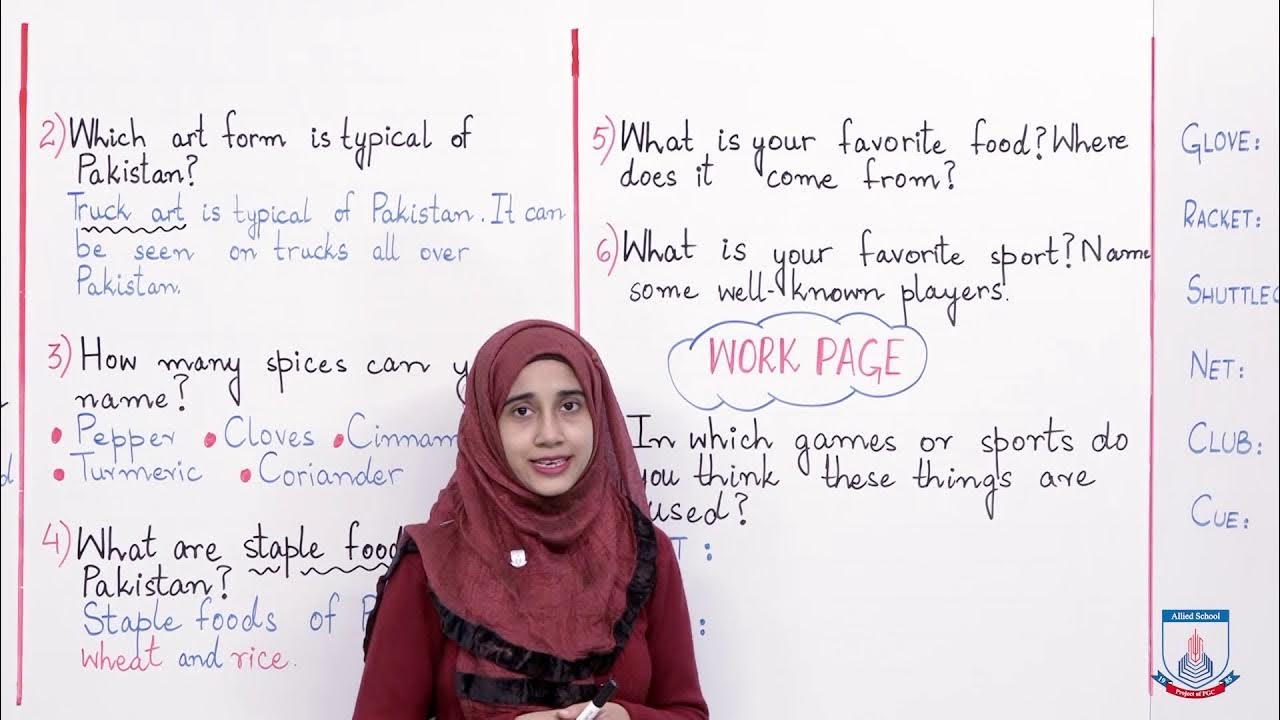 2) Which art form is typical of
Pakistan?
Truck art is typical of Pakistan. It can
be seen on trucks all over
Pakistan.
3) How many spices can y
name?
• Pepper • Cloves • Cinnam
• Turmeric • Coriander
4) What are staple food
Pakistan?
Staple foods of P
wheat and rice.
5) What is your favorite food? Where
does it come from?
6) What is your favorite sport? Name
some well-known players.
WORK PAGE
In which games or sports do
you think these things are
used?
T :
:
GLOVE:
RACKET:
SHUTTLEC
NET:
CLUB:
CUE:
d
Allied School
1985
Project of PGC